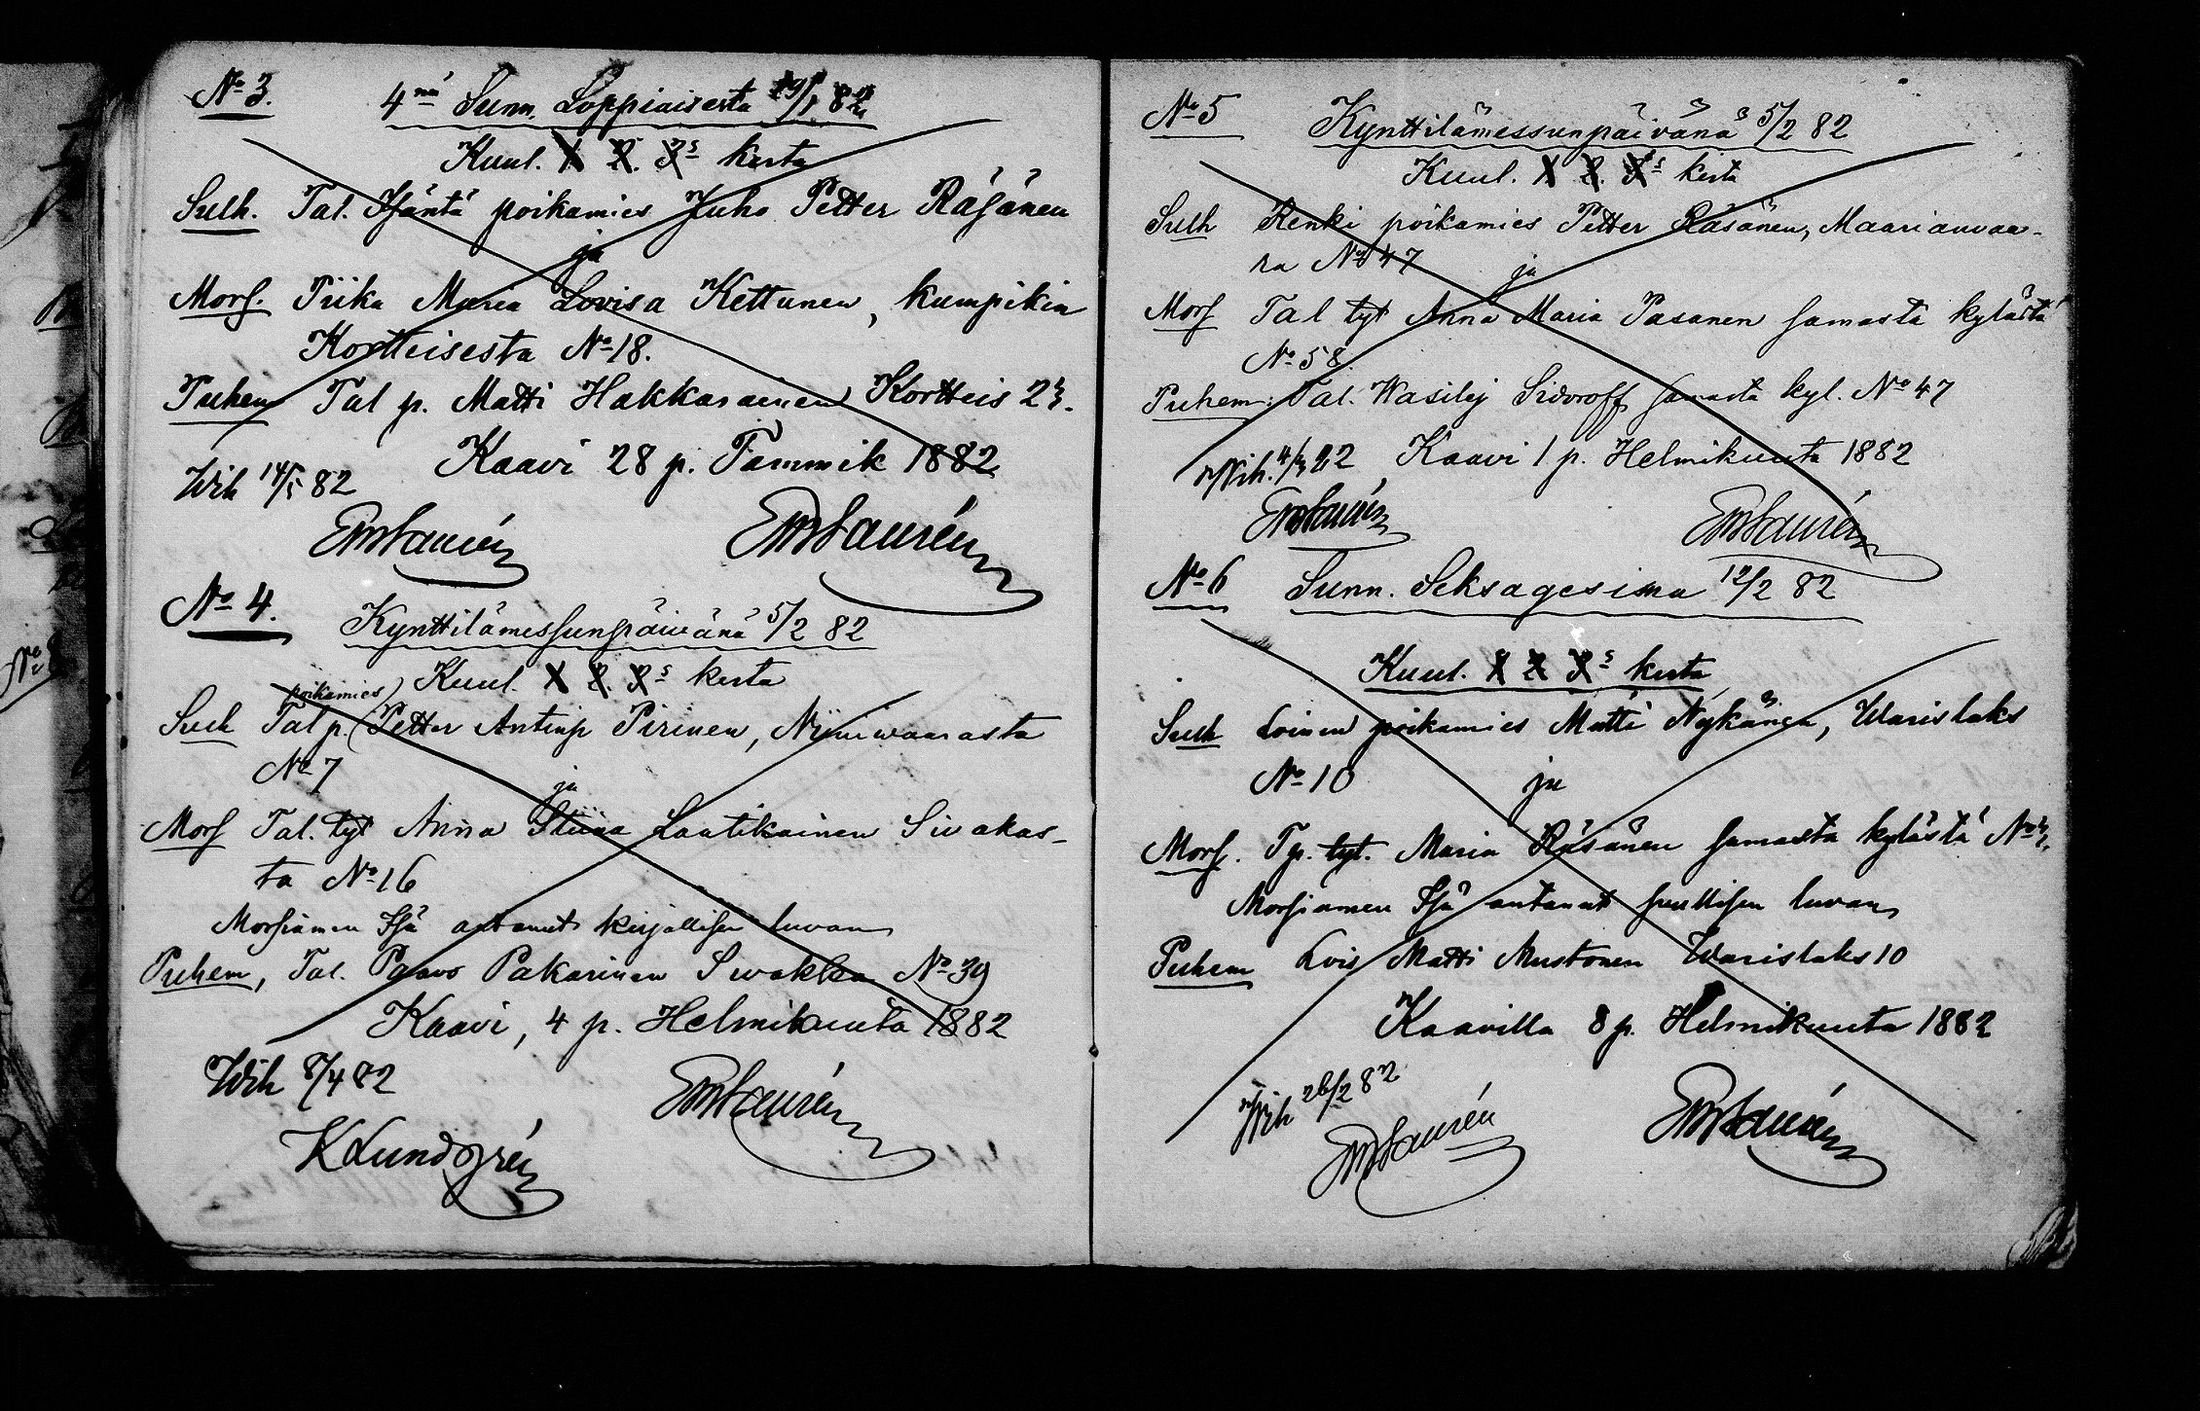 No 3.
4nä Sunn. Loppiaisesta 29/1 82
Kuul. 1 2. 3s kerta
Sulh. Tal. Isäntä poikamies Juho Petter Räsänen
ja
Mors. Piika Maria Lovisa Kettunen, kumpikin
Kortteisesta No 18.
Puhem Tal p. Matti Hakkarainen Kortteis 23.
Kaavi 28 p. Tammik 1882
Wih 14/5 82
EmLaurén
EmLaurén
No 4.
Kynttilämessunpäivänä 5/2 82
Kuul. 1 2. 3s kerta
poikamies
Sulh Tal p. (Petter Antinp Pirinen, Niiniwaarasta
No 7
ja
Mors Tal. tyt Anna Stiina Lautikainen Siwakas-
ta No 16
Morsiamen Isä antanut kirjallisen luvan
Puhem, Tal. Paavo Pakarinen No 39
Kaavi, 4 p. Helmikuuta 1882
Wih 8/4 82
KLundgrén
EmLaurén
No 5
Kynttilämessunpäivänä 5/2 82
Kuul. 1 2. 3s kerta
Sulh Renki poikamies Petter Räsänen, Maarianvaa-
ra No 47
ja
Mors Tal tyt Anna Maria Pasanen samasta kylästä
No 58
Puhem: Tal. Wasilej Sidoroff samasta kyl. No 47
Kaavi 1 p. Helmikuuta 1882
Wih.
EmLaurén
EmLaurén
No 6
Sunn. Seksagesima 12/2 82
Kuul. 1 2 3s kerta
Sulh Loinen poikamies Matti Nykänen, Warislaks
No 10
ja
Mors. Tp. tyt. Maria Räsänen samasta kylästä No
Morsiamen Isä antanut suullisen luvan
Puhem Lois Matti Mustonen Warislaks 10
Kaavilla 8 p. Helmikuuta 1882
Wih 26/2 82
EmLaurén
EmLaurén